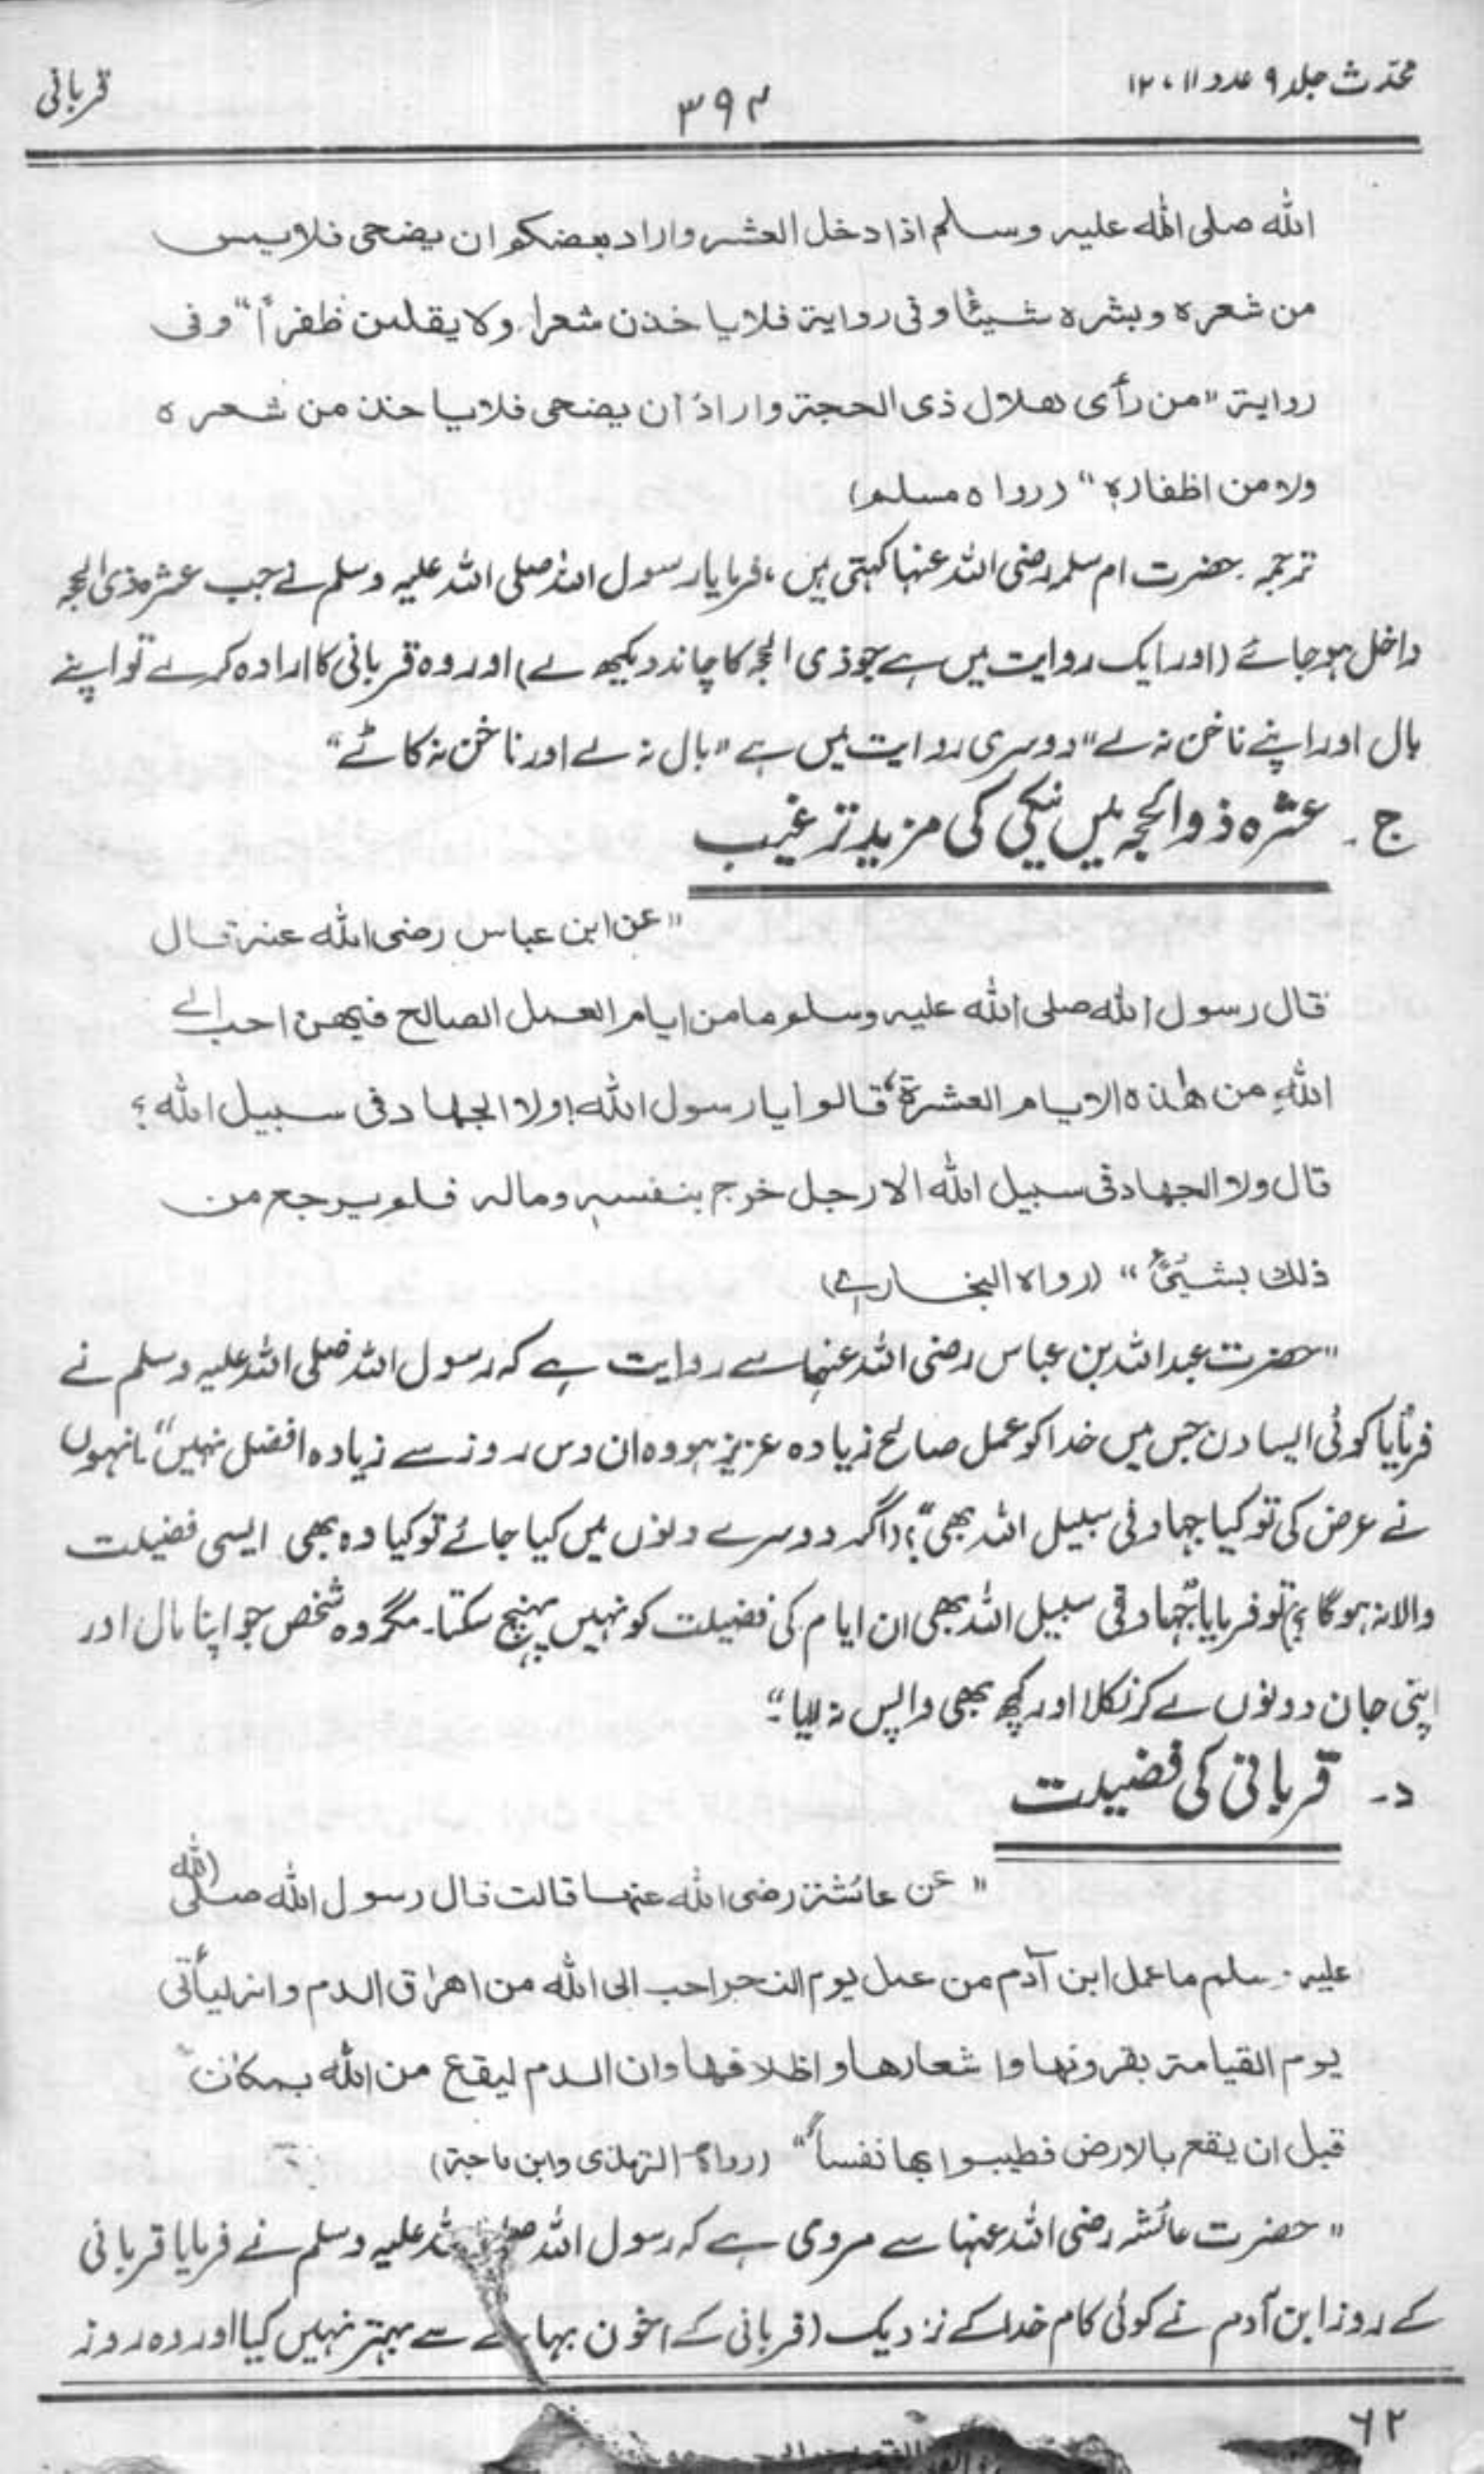 محدّث جلد ۹ عدد ۱۱، ۱۲
۳۹۴
قربانی
الله صلی الله علیه وسلم اذا دخل العشر واراد بعضکم ان یضحی فلایمس
من شعره وبشره شیئًا وفی روایة فلایاخذن شعرا ولا یقلمن ظفراً“ وفی
روایة ”من رأی هلال ذی الحجة واراد ان یضحی فلایاخذ من شعره
ولا من اظفارہٖ“ (رواه مسلم)
ترجمہ۔ حضرت ام سلمہ رضی اللہ عنہا کہتی ہیں، فرمایا رسول اللہ صلی اللہ علیہ وسلم نے جب عشرہ ذی الحجہ
داخل ہو جائے (اور ایک روایت میں ہے جو ذی الحجہ کا چاند دیکھ لے) اور وہ قربانی کا ارادہ کرے تو اپنے
بال اور اپنے ناخن نہ لے“ دوسری روایت میں ہے ”بال نہ لے اور ناخن نہ کاٹے“
ج۔ عشرہ ذوالحجہ میں نیکی کی مزید ترغیب
”عن ابن عباس رضی الله عنه قال
قال رسول الله صلی الله علیه وسلم مامن ایام العمل الصالح فیهن احب الی
اللهِ من هٰذه الایام العشرة“ قالوا یارسول الله! ولا الجهاد فی سبیل الله؟
قال ولا الجهاد فی سبیل الله الا رجل خرج بنفسہٖ وماله فلم یرجع من
ذلك بشیئٍ“ (رواه البخاری)
”حضرت عبداللہ بن عباس رضی اللہ عنہما سے روایت ہے کہ رسول اللہ صلی اللہ علیہ وسلم نے
فرمایا کوئی ایسا دن جس میں خدا کو عمل صالح زیادہ عزیز ہو وہ ان دس روز سے زیادہ افضل نہیں“ انہوں
نے عرض کی تو کیا جہاد فی سبیل اللہ بھی“؟ (اگر دوسرے دنوں میں کیا جائے تو کیا وہ بھی ایسی فضیلت
والا نہ ہوگا؟) تو فرمایا ”جہاد فی سبیل اللہ بھی ان ایام کی فضیلت کو نہیں پہنچ سکتا۔ مگر وہ شخص جو اپنا مال اور
اپنی جان دونوں لے کر نکلا اور کچھ بھی واپس نہ لایا“۔
د۔ قربانی کی فضیلت
”عن عائشة رضی الله عنها قالت قال رسول الله صلی الله
علیہ وسلم ماعمل ابن آدم من عمل یوم النحر احب الی الله من اهراق الدم وانه لیأتی
یوم القیامة بقرونها واشعارها واظلافها وان الدم لیقع من الله بمکان
قبل ان یقع بالارض فطیبوا بها نفساً“ (رواه الترمذی وابن ماجة)
”حضرت عائشہ رضی اللہ عنہا سے مروی ہے کہ رسول اللہ صلی اللہ علیہ وسلم نے فرمایا قربانی
کے روز ابن آدم نے کوئی کام خدا کے نزدیک (قربانی کے) خون بہانے سے بہتر نہیں کیا اور وہ روز
۶۲